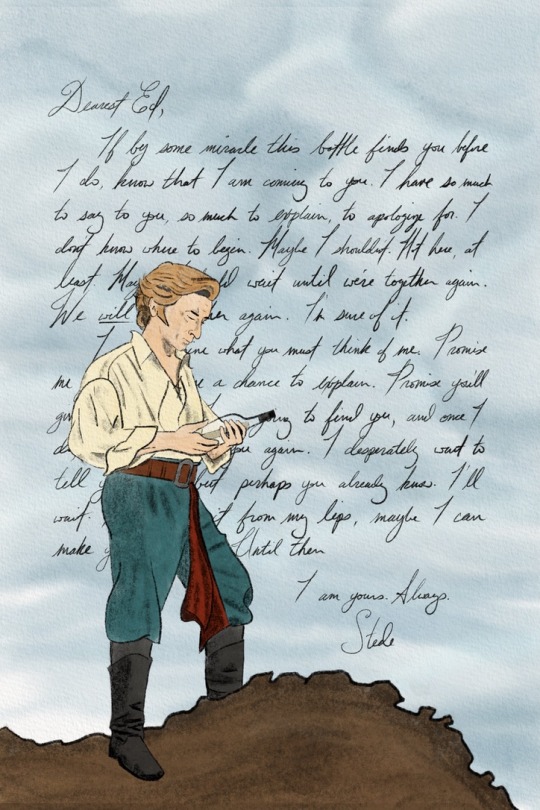 Dearest Ed,
If by some miracle this bottle finds you before
I do, know that I am coming to you. I have so much
to say to you, so much to explain, to apologize for. I
don't know where to begin. Maybe I shouldn't. Not here, at
least. May wait until we're together again.
We will again. I'm sure of it.
what you must think of me. Promise
me a chance to explain. Promise you'll
to find you, and once I
again. I desperately want to
tell but perhaps you already know. I'll
wait. from my lips, maybe I can
make Until then
I am yours. Always.
Stede